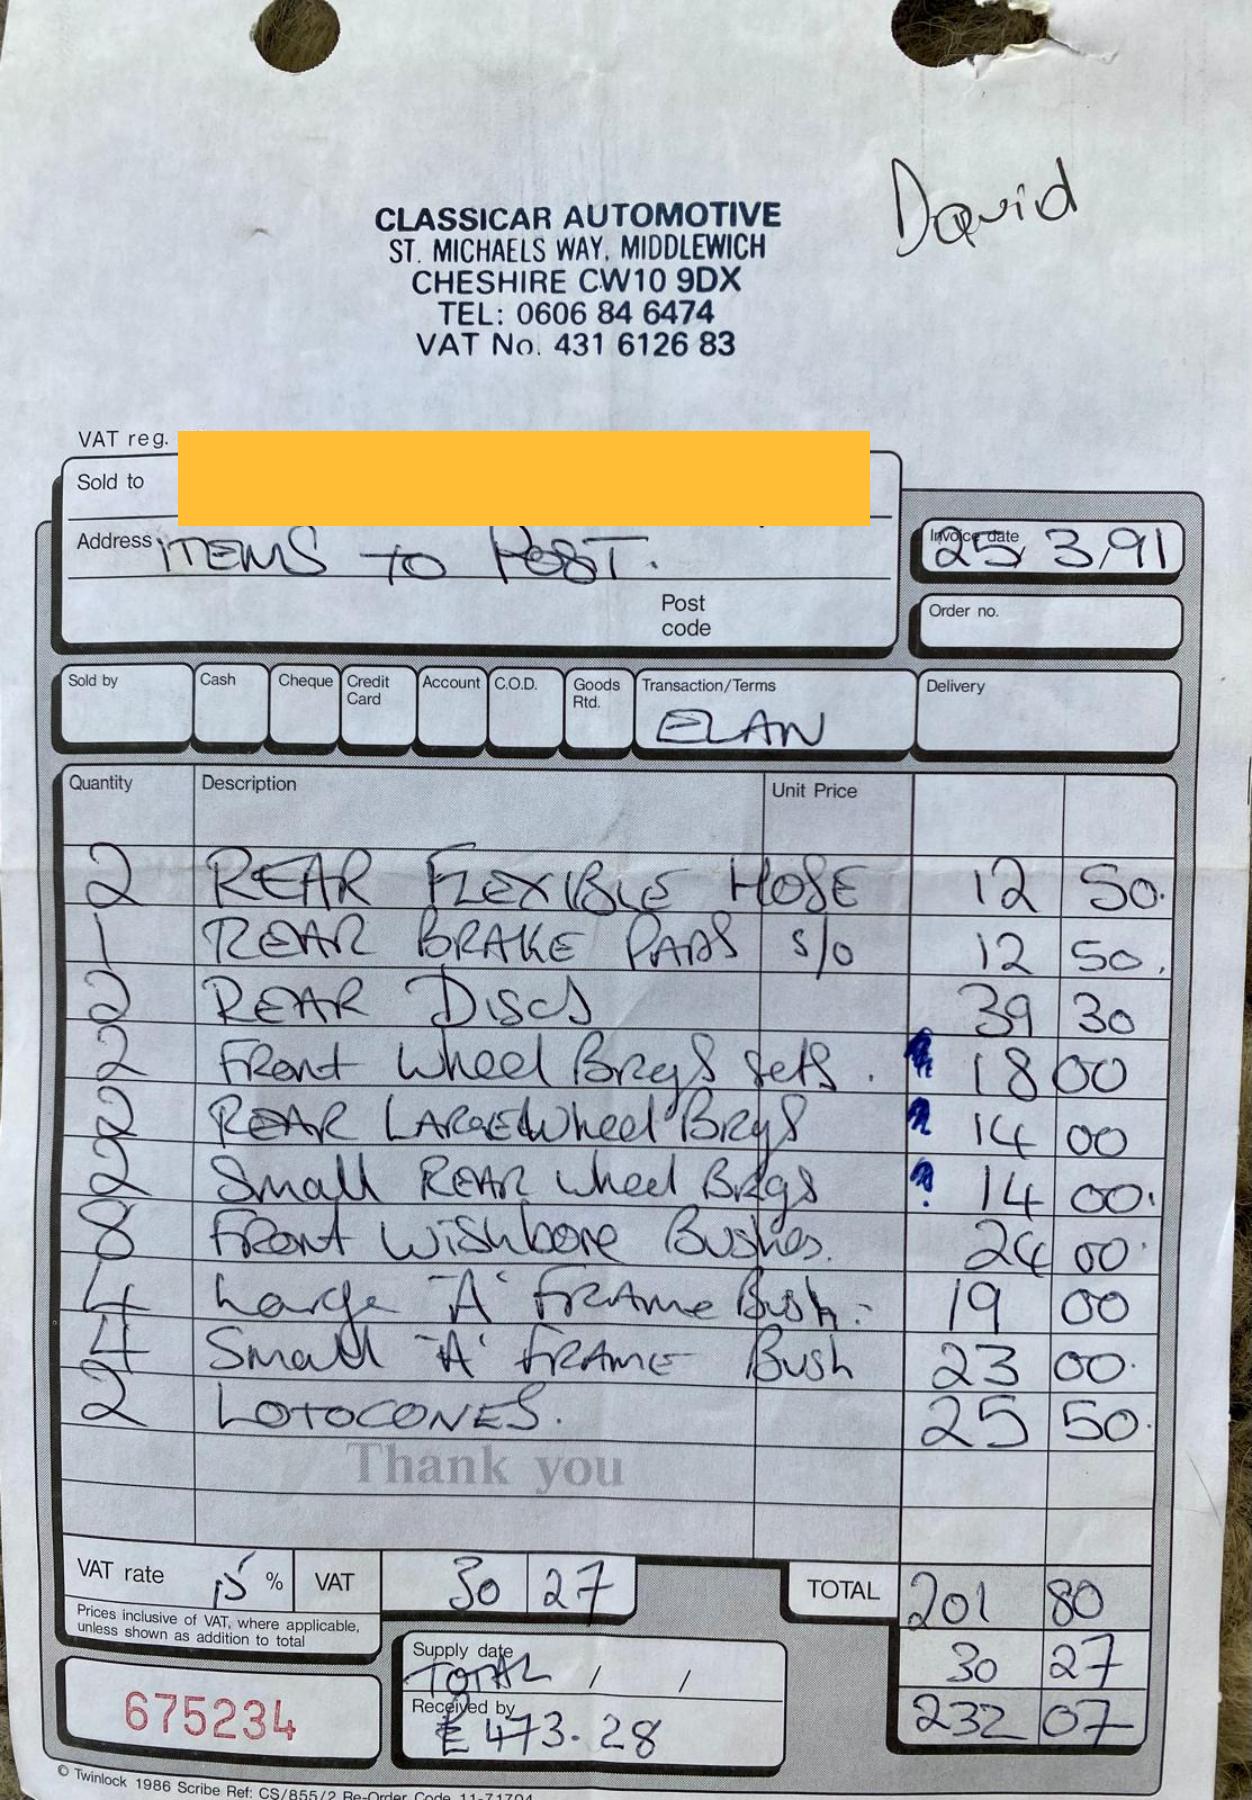 David
CLASSICAR AUTOMOTIVE
ST. MICHAELS WAY, MIDDLEWICH
CHESHIRE CW10 9DX
TEL: 0606 84 6474
VAT No. 431 6126 83
VAT reg.
Sold to
Address ITEMS TO POST.
Post code
Invoice date 25/3/91
Order no.
Sold by Cash Cheque Credit Card Account C.O.D. Goods Rtd. Transaction/Terms ELAN Delivery
Quantity Description Unit Price
2 REAR FLEXIBLE HOSE 12 50.
1 REAR BRAKE PADS s/o 12 50.
2 REAR DISCS 39 30
2 FRont Wheel BRgS Sets. 18 00
2 REAR LARGE Wheel BRgS 14 00
2 Small REAR wheel BRgS 14 00.
8 FRont Wishbone Bushes. 24 00.
4 Large "A" FRAMe Bush. 19 00
4 Small "A" FRAME Bush 23 00.
2 LOTOCONES. 25 50.
Thank you
VAT rate 15 % VAT 30 27 TOTAL 201 80
Prices inclusive of VAT, where applicable, unless shown as addition to total
30 27
232 07
Supply date TOTAL / /
Received by £473.28
675234
© Twinlock 1986 Scribe Ref: CS/855/2 Re-Order Code 11-71704